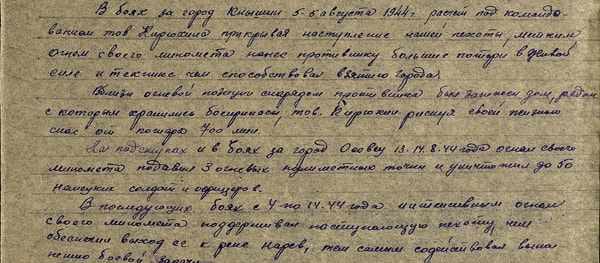 В боях за город Кнышин 5-6 августа 1944 г. расчет под командо-
ванием тов Кирюхина прикрывая наступление нашей пехоты, метким
огнем своего миномета нанес противнику большие потери в живой
силе и технике чем способствовал взятию города.
Вблизи огневой позиции снарядом противника был зажжен дом, рядом
с которым хранились боеприпасы, тов. Кирюхин рискуя своей жизнью
спас от пожара 700 мин.
На подступах и в боях за город Осовец 13-14.8.44 года огнем своего
миномета подавил 3 огневых пулеметных точки и уничтожил до 50
немецких солдат и офицеров.
В последующих боях с 4 по 44 года интенсивным огнем
своего миномета поддерживал наступающую пехоту, чем
обеспечил выход ее к реке Нарев, тем самым содействовал выпол
нению боевой задачи